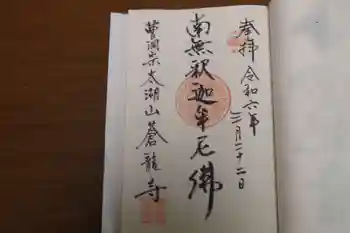 奉拝 令和六年
三月二十二日
南無釈迦牟尼佛
曹洞宗太湖山蒼龍寺